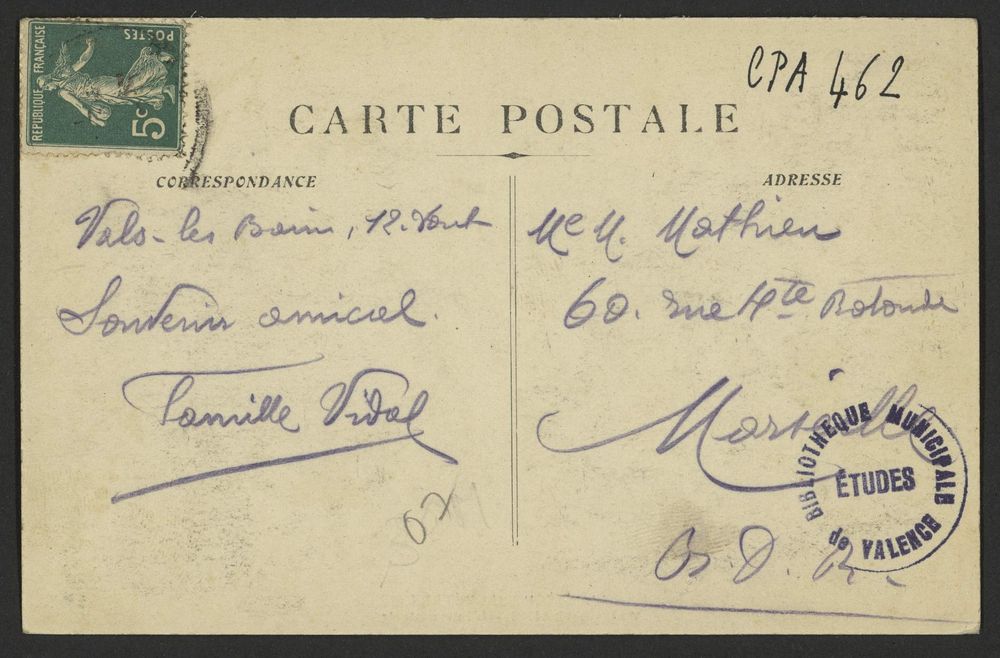 RÉPUBLIQUE FRANÇAISE
POSTES
5c
CPA 462
CARTE POSTALE
CORRESPONDANCE
Vals-les Bains, 12. Aout
Souvenir amical.
Famille Vidal
07
ADRESSE
Me M. Mathieu
60. rue Hte Rotonde
Marseille
B. D. R.
BIBLIOTHÈQUE MUNICIPALE
ÉTUDES
de VALENCE